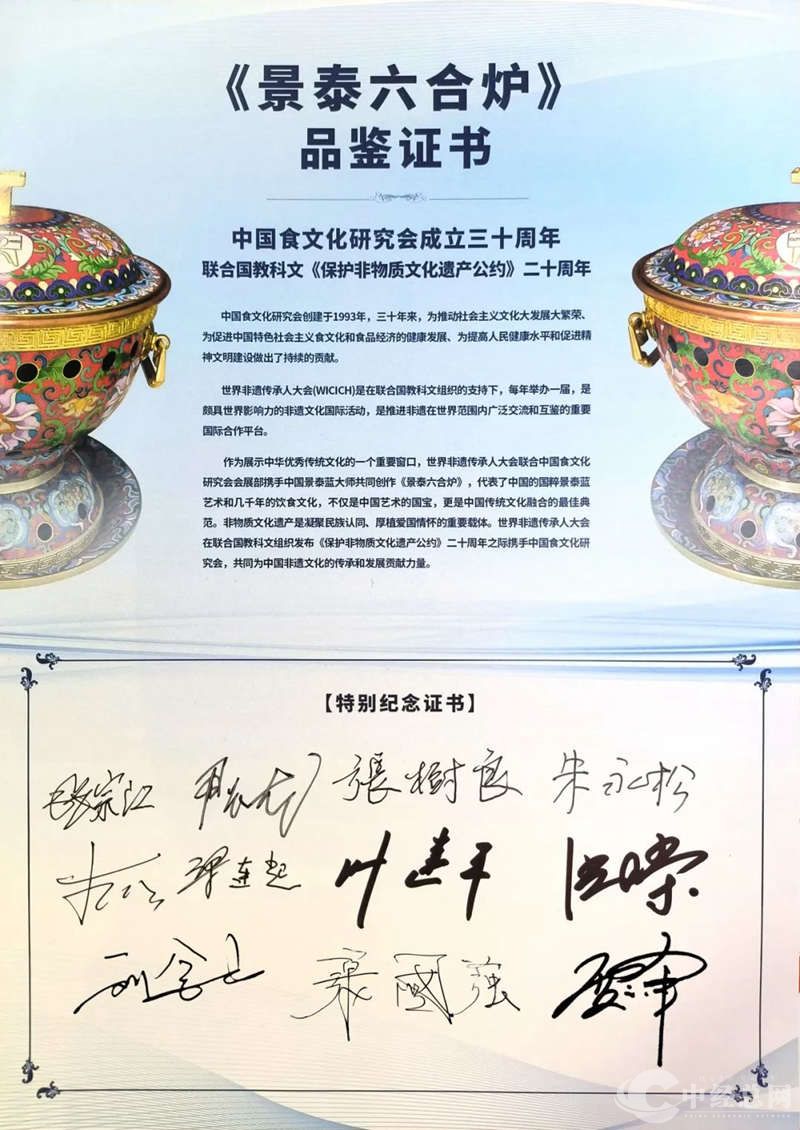 《景泰六合炉》
品鉴证书
中国食文化研究会成立三十周年
联合国教科文《保护非物质文化遗产公约》二十周年
中国食文化研究会创建于1993年，三十年来，为推动社会主义文化大发展大繁荣、
为促进中国特色社会主义食文化和食品经济的健康发展、为提高人民健康水平和促进精
神文明建设做出了持续的贡献。
世界非遗传承人大会(WICICH)是在联合国教科文组织的支持下，每年举办一届，是
颇具世界影响力的非遗文化国际活动，是推进非遗在世界范围内广泛交流和互鉴的重要
国际合作平台。
作为展示中华优秀传统文化的一个重要窗口，世界非遗传承人大会联合中国食文化
研究会会展部携手中国景泰蓝大师共同创作《景泰六合炉》，代表了中国的国粹景泰蓝
艺术和几千年的饮食文化，不仅是中国艺术的国宝，更是中国传统文化融合的最佳典
范。非物质文化遗产是凝聚民族认同、厚植爱国情怀的重要载体。世界非遗传承人大会
在联合国教科文组织发布《保护非物质文化遗产公约》二十周年之际携手中国食文化研
究会，共同为中国非遗文化的传承和发展贡献力量。
【特别纪念证书】
張樹良 朱永松
叶建平
國強
中经总网